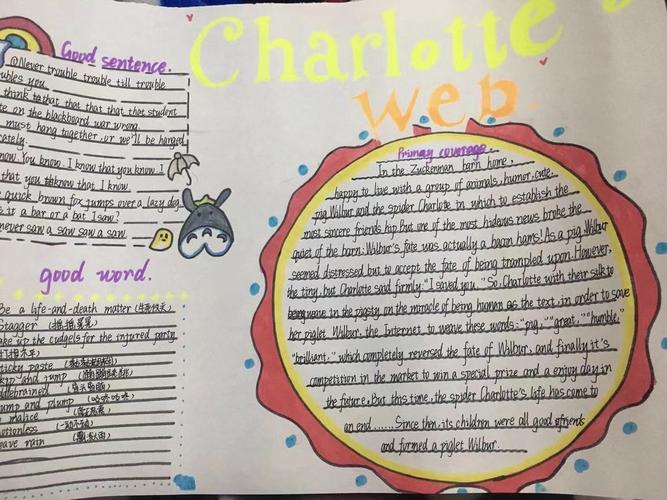 Charlotte's
web.
Good sentence.
①Never trouble trouble till trouble
you
think that that that that that student
on the blackboard war wrong.
must hang together, or we'll be hanged
know. You know. I know that you know I
that you know that I know
quick brown fox jumps over a lazy dog
it a bar or a bat I saw?
never saw a saw saw a saw
good word.
Be a life-and-death matter
Stagger
up the cudgels for the injured party
sticky paste
and jump
and plump
malice
rain
Primary coverage.
In the Zuckerman barn home,
happy to live with a group of animals, humor, cute
pig Wilbur and the spider Charlote in which to establish the
most sincere friends hip But one of the most hideus news broke the
quiet of the barn: Wilbur's fate was actually a bacon hams! As a pig, Wilbur
seemed distressed but to accept the fate of being trampled upon. However,
the tiny, but Charlote said firmly: "I saved you." So, Charlotte with their silk to
weave in the pigsty on the miracle of being human as the text, in order to save
her piglet Wilbur, the Internet, to weave these words: "pig," "great," "humble,"
"brilliant," which completely reversed the fate of Wilbur, and finally it's
competition in the market to win a special prize and a enjoy day in
the future. But this time, the spider Charlotte's life has come to
an end...... Since then its children were all good friends
and formed a piglet Wilbur.